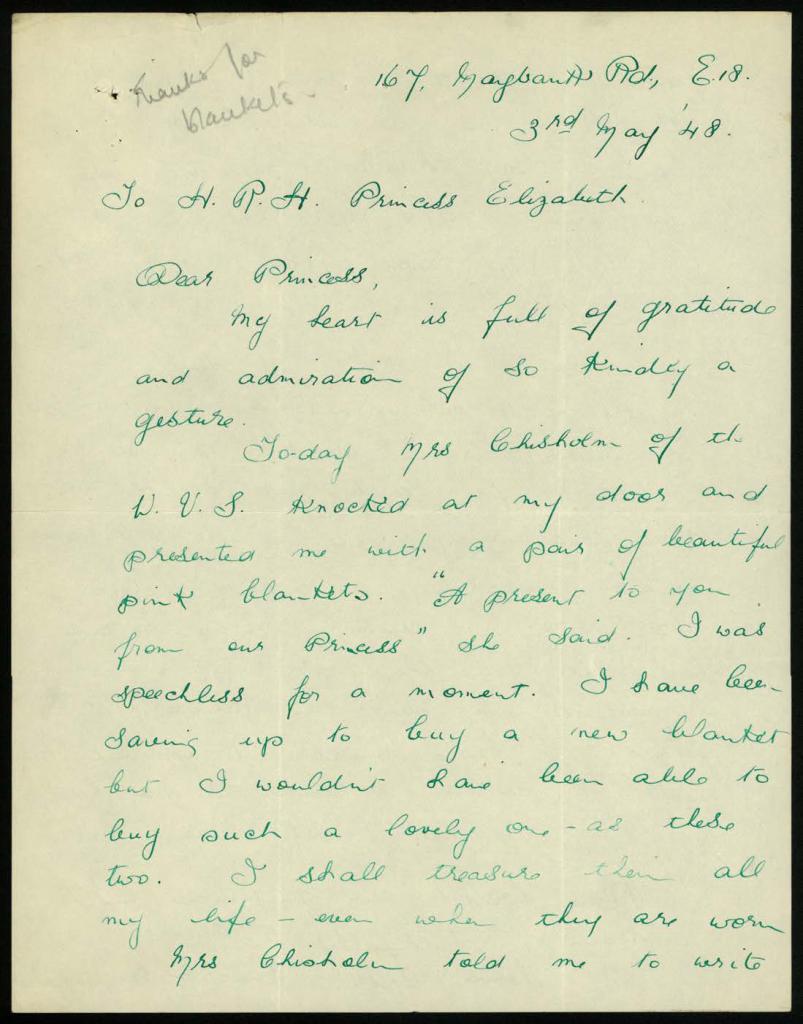 Thanks for
blankets
167, Maybank Rd, E.18.
3rd May '48.
To H. R. H. Princess Elizabeth.
Dear Princess,
My heart is full of gratitude
and admiration of so kindly a
gesture.
To-day Mrs Chisholm of the
W. V. S. knocked at my door and
presented me with a pair of beautiful
pink blankets. "A present to you
from our Princess" she said. I was
speechless for a moment. I have been
saving up to buy a new blanket
but I wouldn't have been able to
buy such a lovely one - as these
two. I shall treasure them all
my life - even when they are worn
Mrs Chisholm told me to write